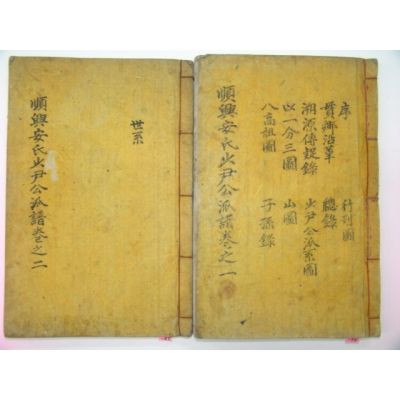 序　行列圖
貫鄕沿革　總錄
溯源傳疑錄　少尹公派系圖
以一分三圖　山圖
八高祖圖　子孫錄
順興安氏少尹公派譜卷之一
世系
順興安氏少尹公派譜卷之二